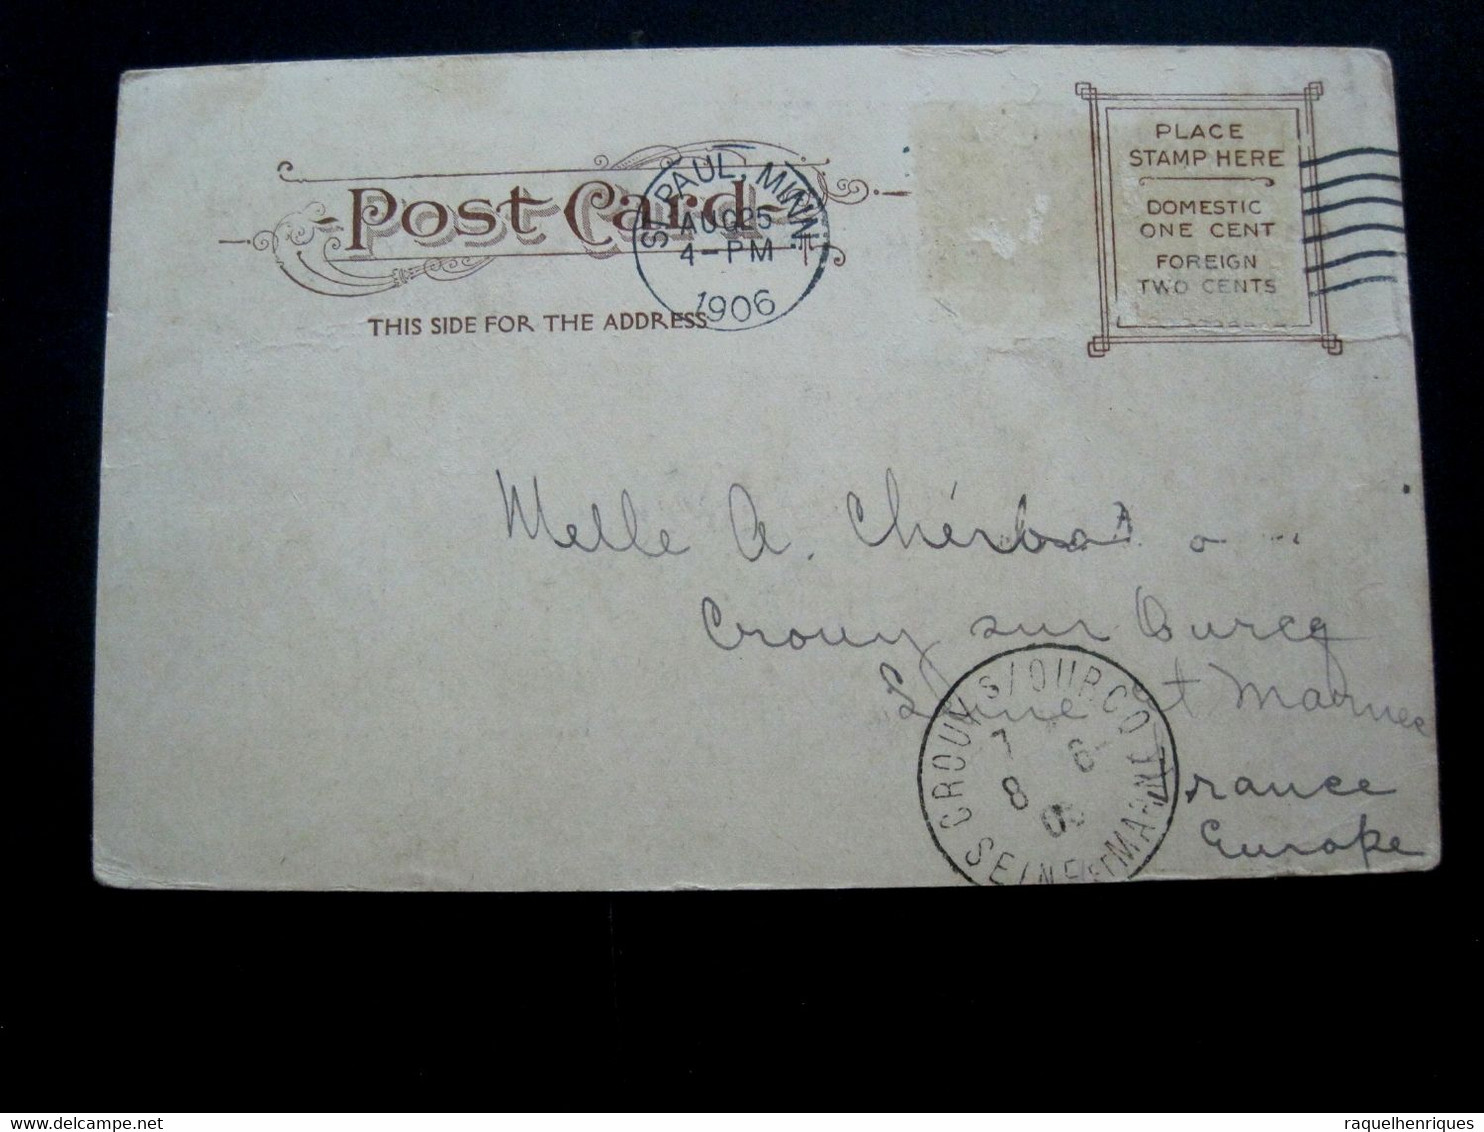 Post Card
THIS SIDE FOR THE ADDRESS
ST. PAUL, MINN.
AUG 25
4-PM
1906
PLACE
STAMP HERE
DOMESTIC
ONE CENT
FOREIGN
TWO CENTS
Melle A.
Crouy sur Ourcq
Seine et Marne
France
Europe
CROUY S/OURCQ
SEINE ET MARNE
7 6
8
raquelhenriques